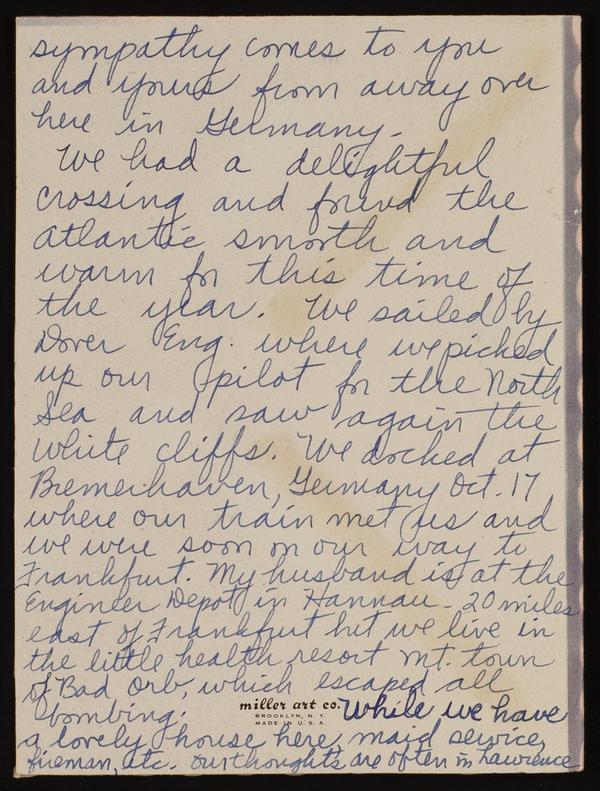 sympathy comes to you
and yours from away over
here in Germany.
We had a delightful
crossing and found the
atlantic smooth and
warm for this time of
the year. We sailed by
Dover Eng. where we picked
up our pilot for the North
Sea and saw again the
White cliffs. We docked at
Bremerhaven, Germany Oct. 17
where our train met us and
we were soon on our way to
Frankfurt. My husband is at the
Engineer Depot in Hannau - 20 miles
east of Frankfurt but we live in
the little health resort mt. town
of Bad Orb, which escaped all
bombing. While we have
miller art co.
BROOKLYN, N. Y.
MADE IN U. S. A.
a lovely house here, maid service,
fireman, etc. our thoughts are often in Lawrence